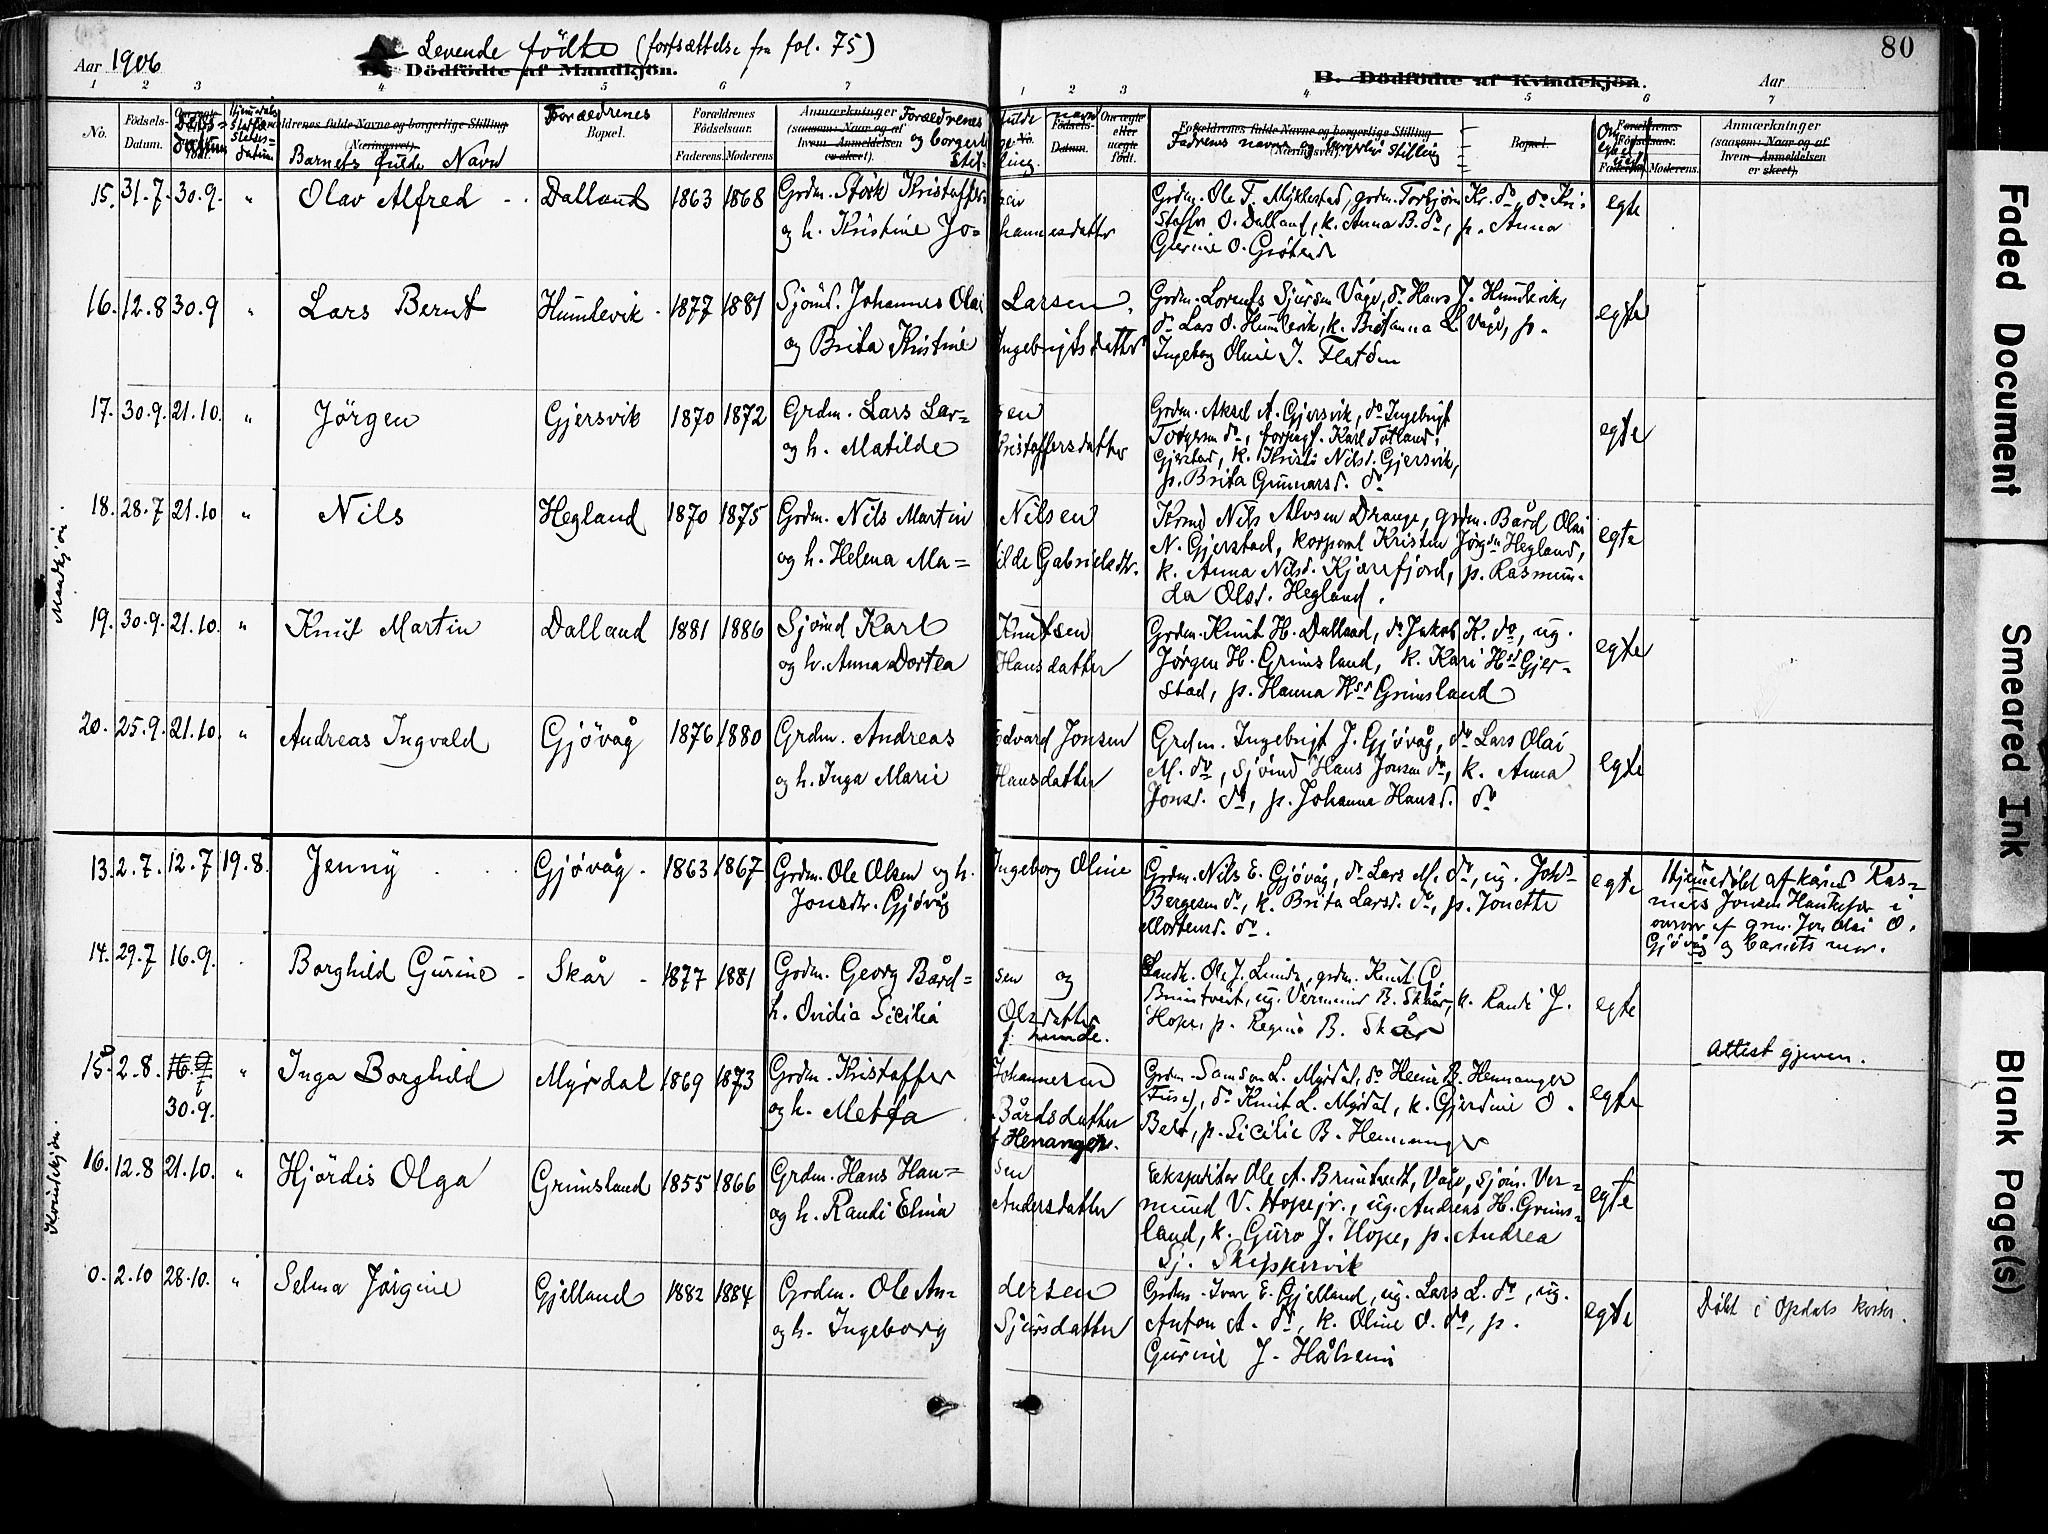 Aar 1906
Levende födte (fortsættelse fra fol. 75)
Dödfödte af Mandkjön.
B. Dödfödte af Kvindekjön.
Aar
80
1 2 3 4 5 6 7
1 2 3 4 5 6 7
No. Födsels-Datum. Daabs-datum Barnets fulde Navn Forældrenes Bopæl. Forældrenes Födselsaar. Faderens. Moderens. Anmærkninger Forældrenes fulde navn og borgerlige Stilling.
Fadrenes navn og borgerlig stilling
Anmærkninger
Mandkjön.
15. 31.7. 30.9. " Olav Alfred Dalland 1863 1868 Grdm. Störk Kristaffersen
og h. Kristine Johannesdatter
Grdm. Ole T. Mykkestad, grdm. Torbjörn Kr. do, do Kristaffer O. Dalland, k. Anna B. do, p. Anna
egte
16. 12.8 30.9 " Lars Bernt Humlevik 1877 1881 Sjömd. Johannes Olai Larsen
og Brita Kristine Ingebrigtsdatter
Grdm. Lorents Sjursen Våge, do Hans J. Humlevik,
do Lars O. Humlevik, k. Bertanna L. Våge, p.
Ingeborg Oline J. Flatöen
egte
17. 30.9. 21.10. " Jörgen Gjersvik 1870 1872 Grdm. Lars Larsen
og h. Matilde Kristaffersdatter
Grdm. Aksel A. Gjersvik, do Ingebrigt
Torgersen do, forpagt. Karl Totland,
Gjerstad, k. Kristi Nilsd. Gjersvik,
p. Brita Gunnarsd. do
egte
18. 28.7 21.10 " Nils Hegland 1870 1875 Grdm. Nils Martin Nilsen
og h. Helena Matilde Gabrielsdtr.
Nils Alvsen Drange, grdm. Bård Olai
N. Gjerstad, korporal Kristen Jörgsn Hegland,
k. Anna Nilsd. Kjærefjord, p. Rasmunda Olsd. Hegland.
egte
19. 30.9. 21.10. " Knut Martin Dalland 1881 1886 Sjömd Karl Knutsen
og h. Anna Dortea Hansdatter
Grdm. Knut H. Dalland, do Jakob K. do, ug.
Jörgen H. Grimsland, k. Kari Hsd Gjerstad, p. Hanna Hsd Grimsland
egte
20. 25.9. 21.10. " Andreas Ingvald Gjövåg 1876 1880 Grdm. Andreas Edvard Jonsen
og h. Inga Marie Hansdatter
Grdm. Ingebrigt J. Gjövåg, do Lars Olai
M. do, Sjömd Hans Jonsen do, k. Anna
Jonsd. do, p. Johanna Hansd. do
egte
Kvindekjön.
13. 2.7. 12.7 19.8. Jenny Gjövåg 1863 1867 Grdm. Ole Olsen og h. Ingeborg Oline
Jonsdtr. Gjövåg
Grdm. Nils E. Gjövåg, do Lars M. do, ug. Johs
Bergesen do, k. Brita Larsd. do, p. Jonette
Mortensd. do.
egte
Hjemmedöbt af kårmd Rasmus Jonsen Haukefær i
nærvær af grm. Jon Olai O.
Gjövåg og barnets mor.
14. 29.7 16.9. Borghild Gurine Skår 1877 1881 Grdm. Georg Bårdsen og
h. Ovidia Sicilia Olsdatter
f. Lunde.
Landh. Ole J. Lunde, grdm. Knut C.
Bruntveit, ug. Vermund B. Skår, k. Randi J.
Hope, p. Regine B. Skår
egte
Attest gjeven.
15. 2.8. 16.9 30.9. " Inga Borghild Myrdal 1869 1873 Grdm. Kristaffer Johannesen
og h. Metta Bårdsdatter
f Henanger.
Grdm. Samson L. Myrdal, do Heine B. Hennanger
(Fuse), do Knut L. Myrdal, k. Gjerdine O.
p. Sicilie B. Hennanger
egte
16. 12.8 21.10. " Hjördis Olga Grimsland 1855 1866 Grdm. Hans Hansen
og h. Randi Elina Andersdatter
Ekspeditör Ole A. Bruntveit, Våge, Sjöm. Vermund V. Hope jr., ug. Andreas H. Grimsland, k. Guro J. Hope, p. Andrea
Sj. Skippervik
egte
0. 2.10 28.10. " Selma Jörgine Gjelland 1882 1884 Grdm. Ole Andersen
og h. Ingeborg Sjursdatter
Grdm. Ivar E. Gjelland, ug. Lars L. do, ug.
Anton A. do, k. Oline O. do, p.
Gurine J. Hålheim
egte
Döbt i Opdals kirke.
Faded Document
Smeared Ink
Blank Page(s)